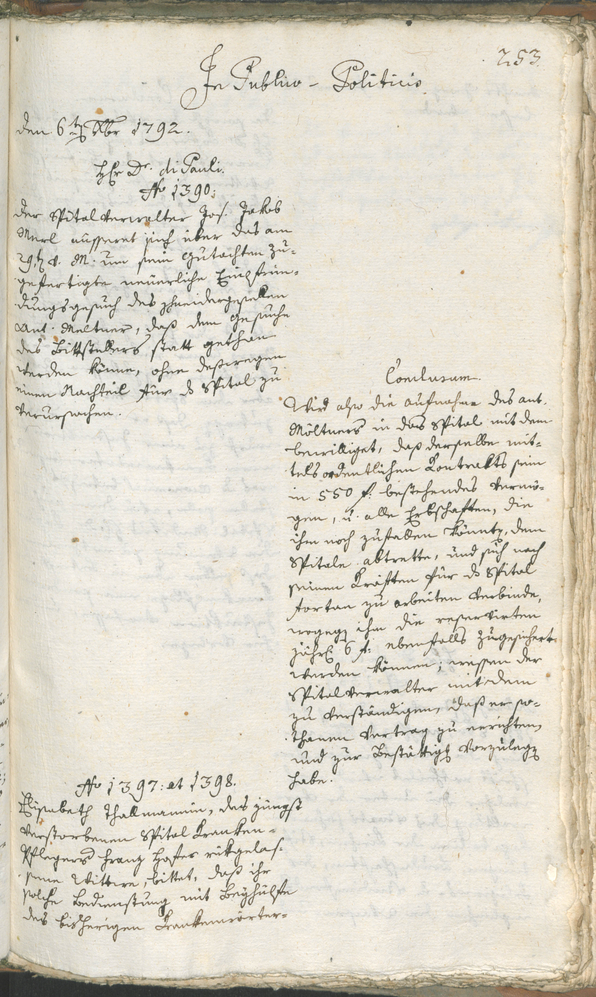 253.
In Publico-Politicis.
den 6t Xbr 1792.
H. Dr. di Pauli.
No 1390:
Der Spitalverwalter Jos. Jakob
Merl äussert sich über das am
29t v. M: um sein Gutachten zu-
gefertigte neuerliche Einpfrün-
dungsgesuch des Schneidergesellen
Ant. Meltner, daß dem Gesuche
des Bittstellers statt gethan
werden könne, ohne deßwegen
einen Nachteil für d Spital zu
verursachen.
Conclusum
Wird also die Aufnahme des Ant.
Möltners in das Spital mit dem
bewilliget, daß derselbe mit-
tels ordentlichen Kontrakts sein
in 550 f. bestehendes Vermö-
gen, u. alle Erbschaften, die
ihm noch zufallen könnten, dem
Spitale abtrette, und sich nach
seinen Kräften für d Spital
fortan zu arbeiten verbinde,
wogegen ihm die reservirten
jährl 6 f. ebenfalls zugesichert
werden können; wessen der
Spitalverwalter mit dem
zu verständigen, daß er so-
thanen Vertrag zu errichten,
und zur Bestättigg vorzulegen
habe.
No 1397: et 1398.
Elisabeth Thalmannin, des jüngst
verstorbenen Spital Kranken-
Pflegers Franz Hofer rükgelas-
sene Wittwe, bittet, daß ihr
solche Bedienstung mit Beyhülfe
des bisherigen Krankenwärter-